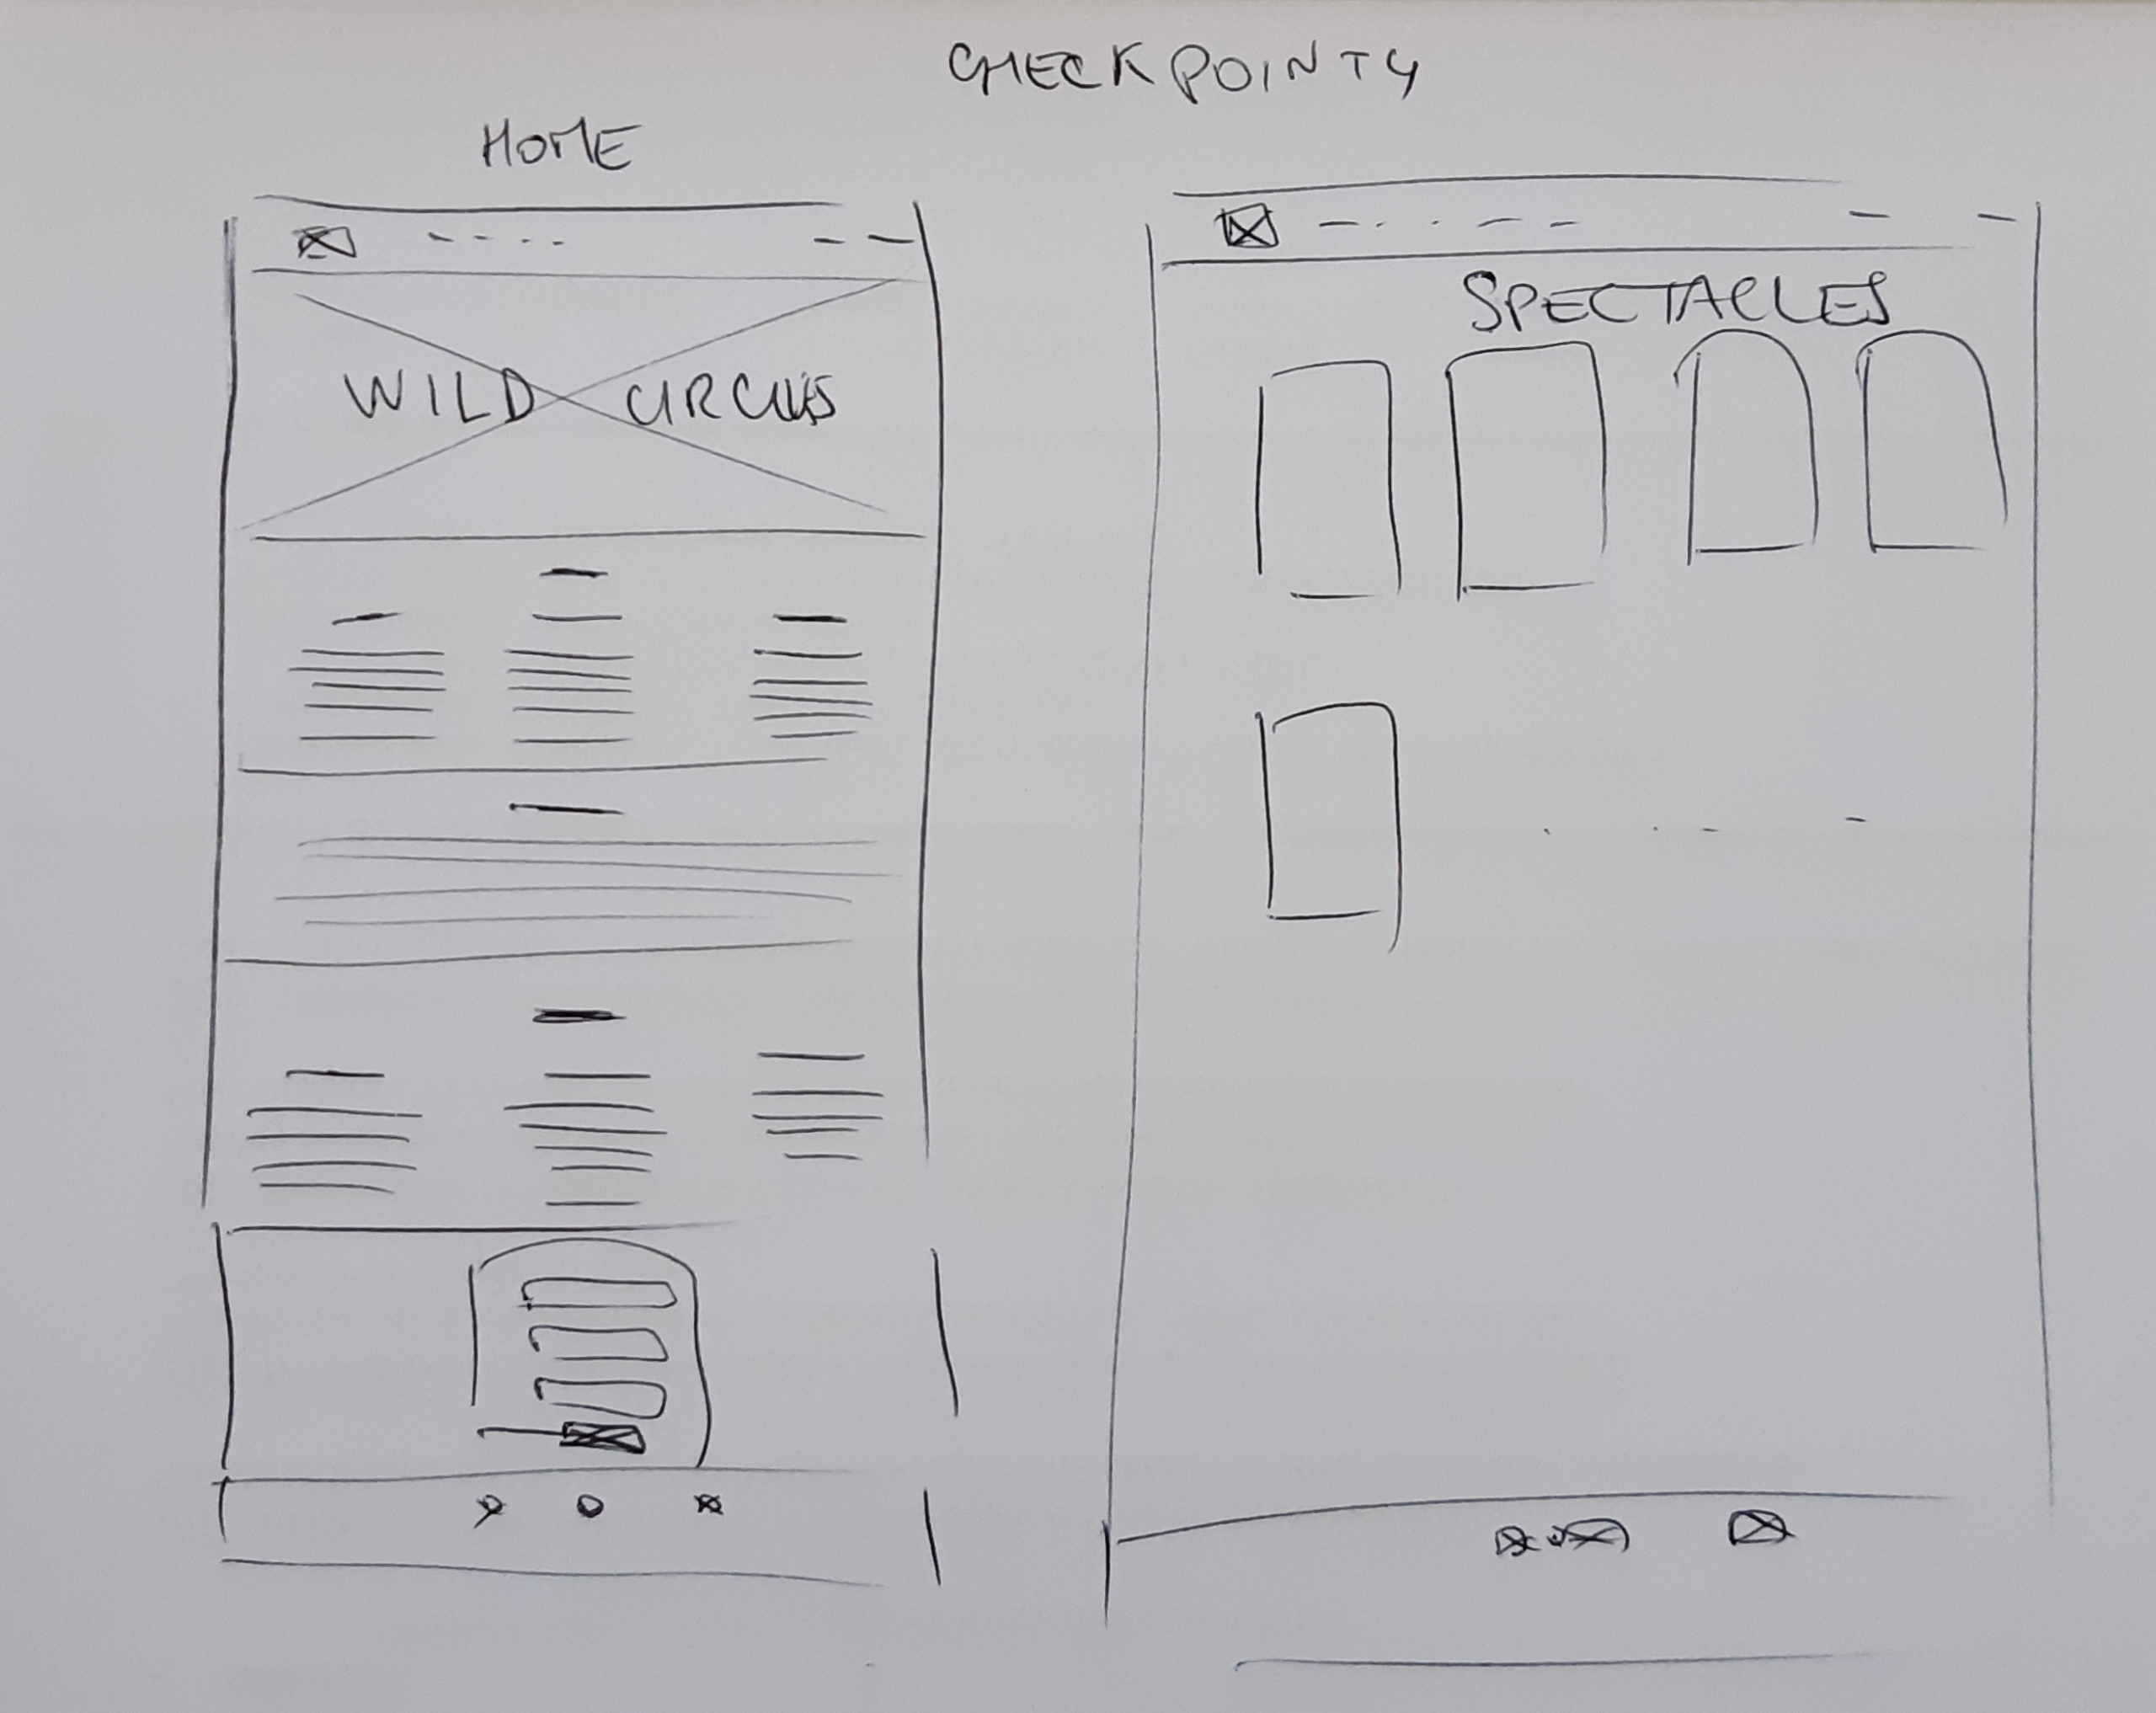 CHECKPOINT4
HOME
WILD CIRCUS
SPECTACLES